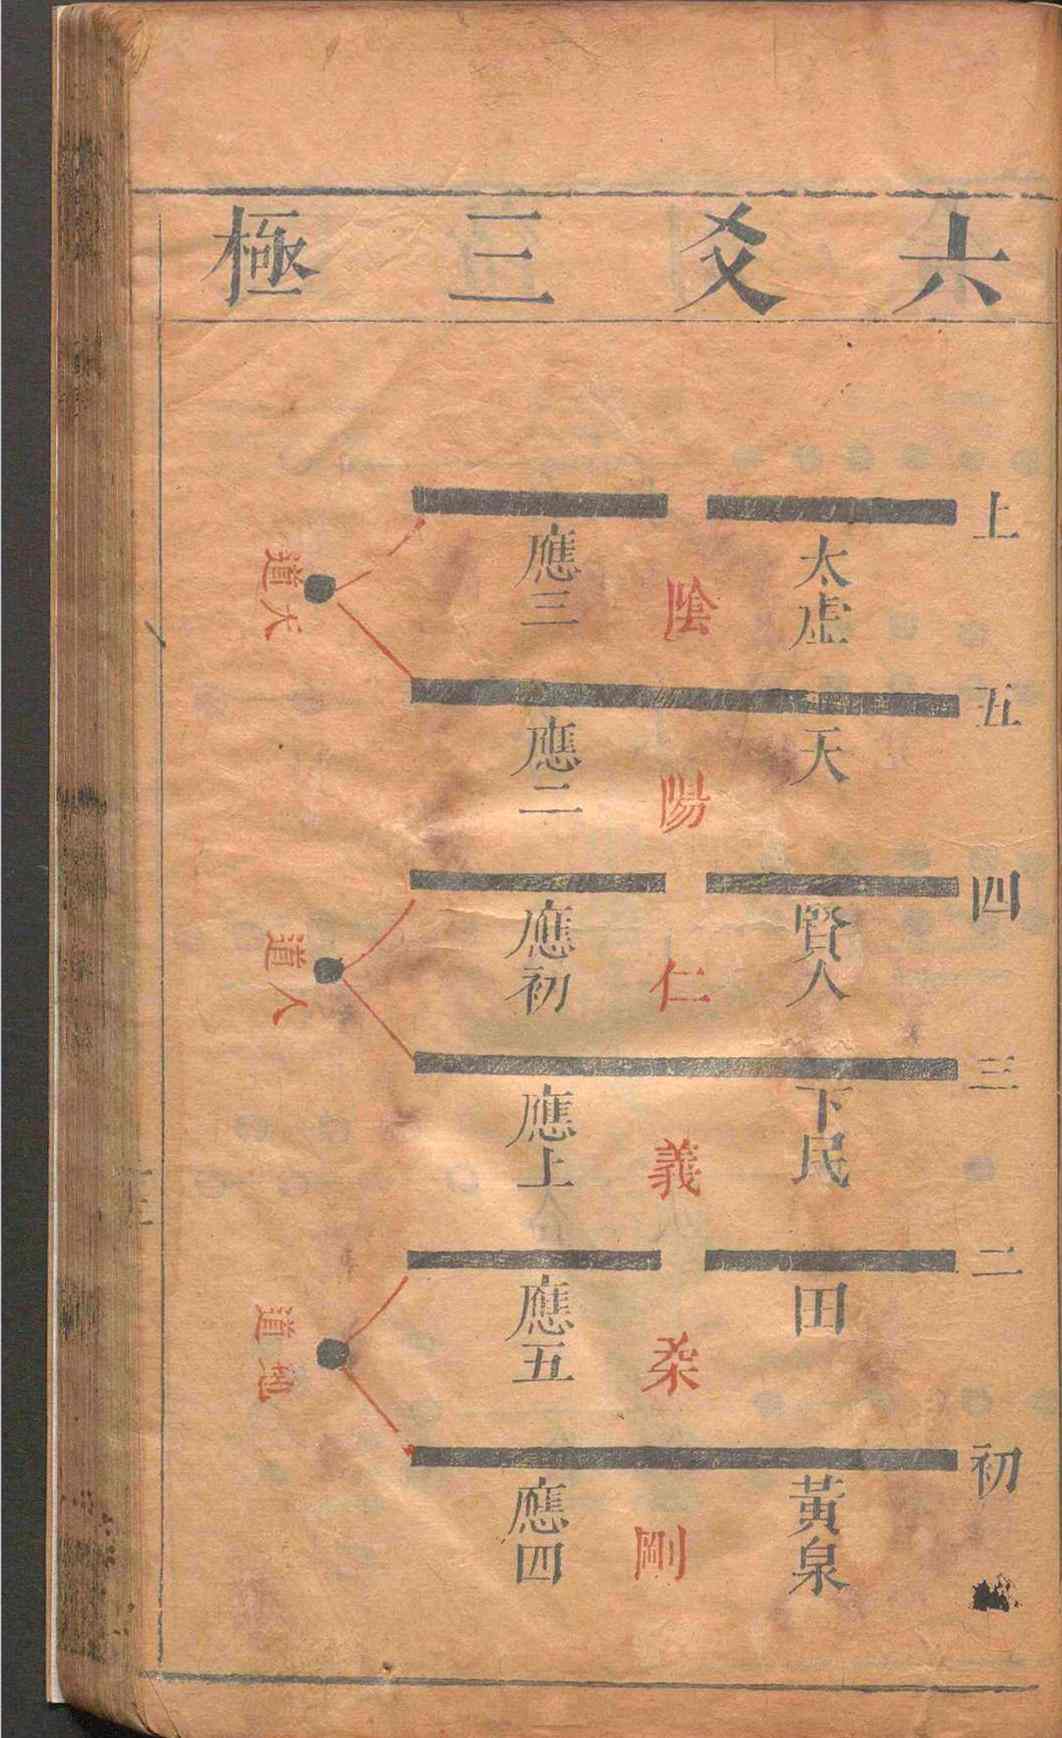 六爻三極
上
太虛
陰
應三
天道
五
天
陽
應二
四
賢人
仁
應初
人道
三
下民
義
應上
二
田
柔
應五
地道
初
黃泉
剛
應四